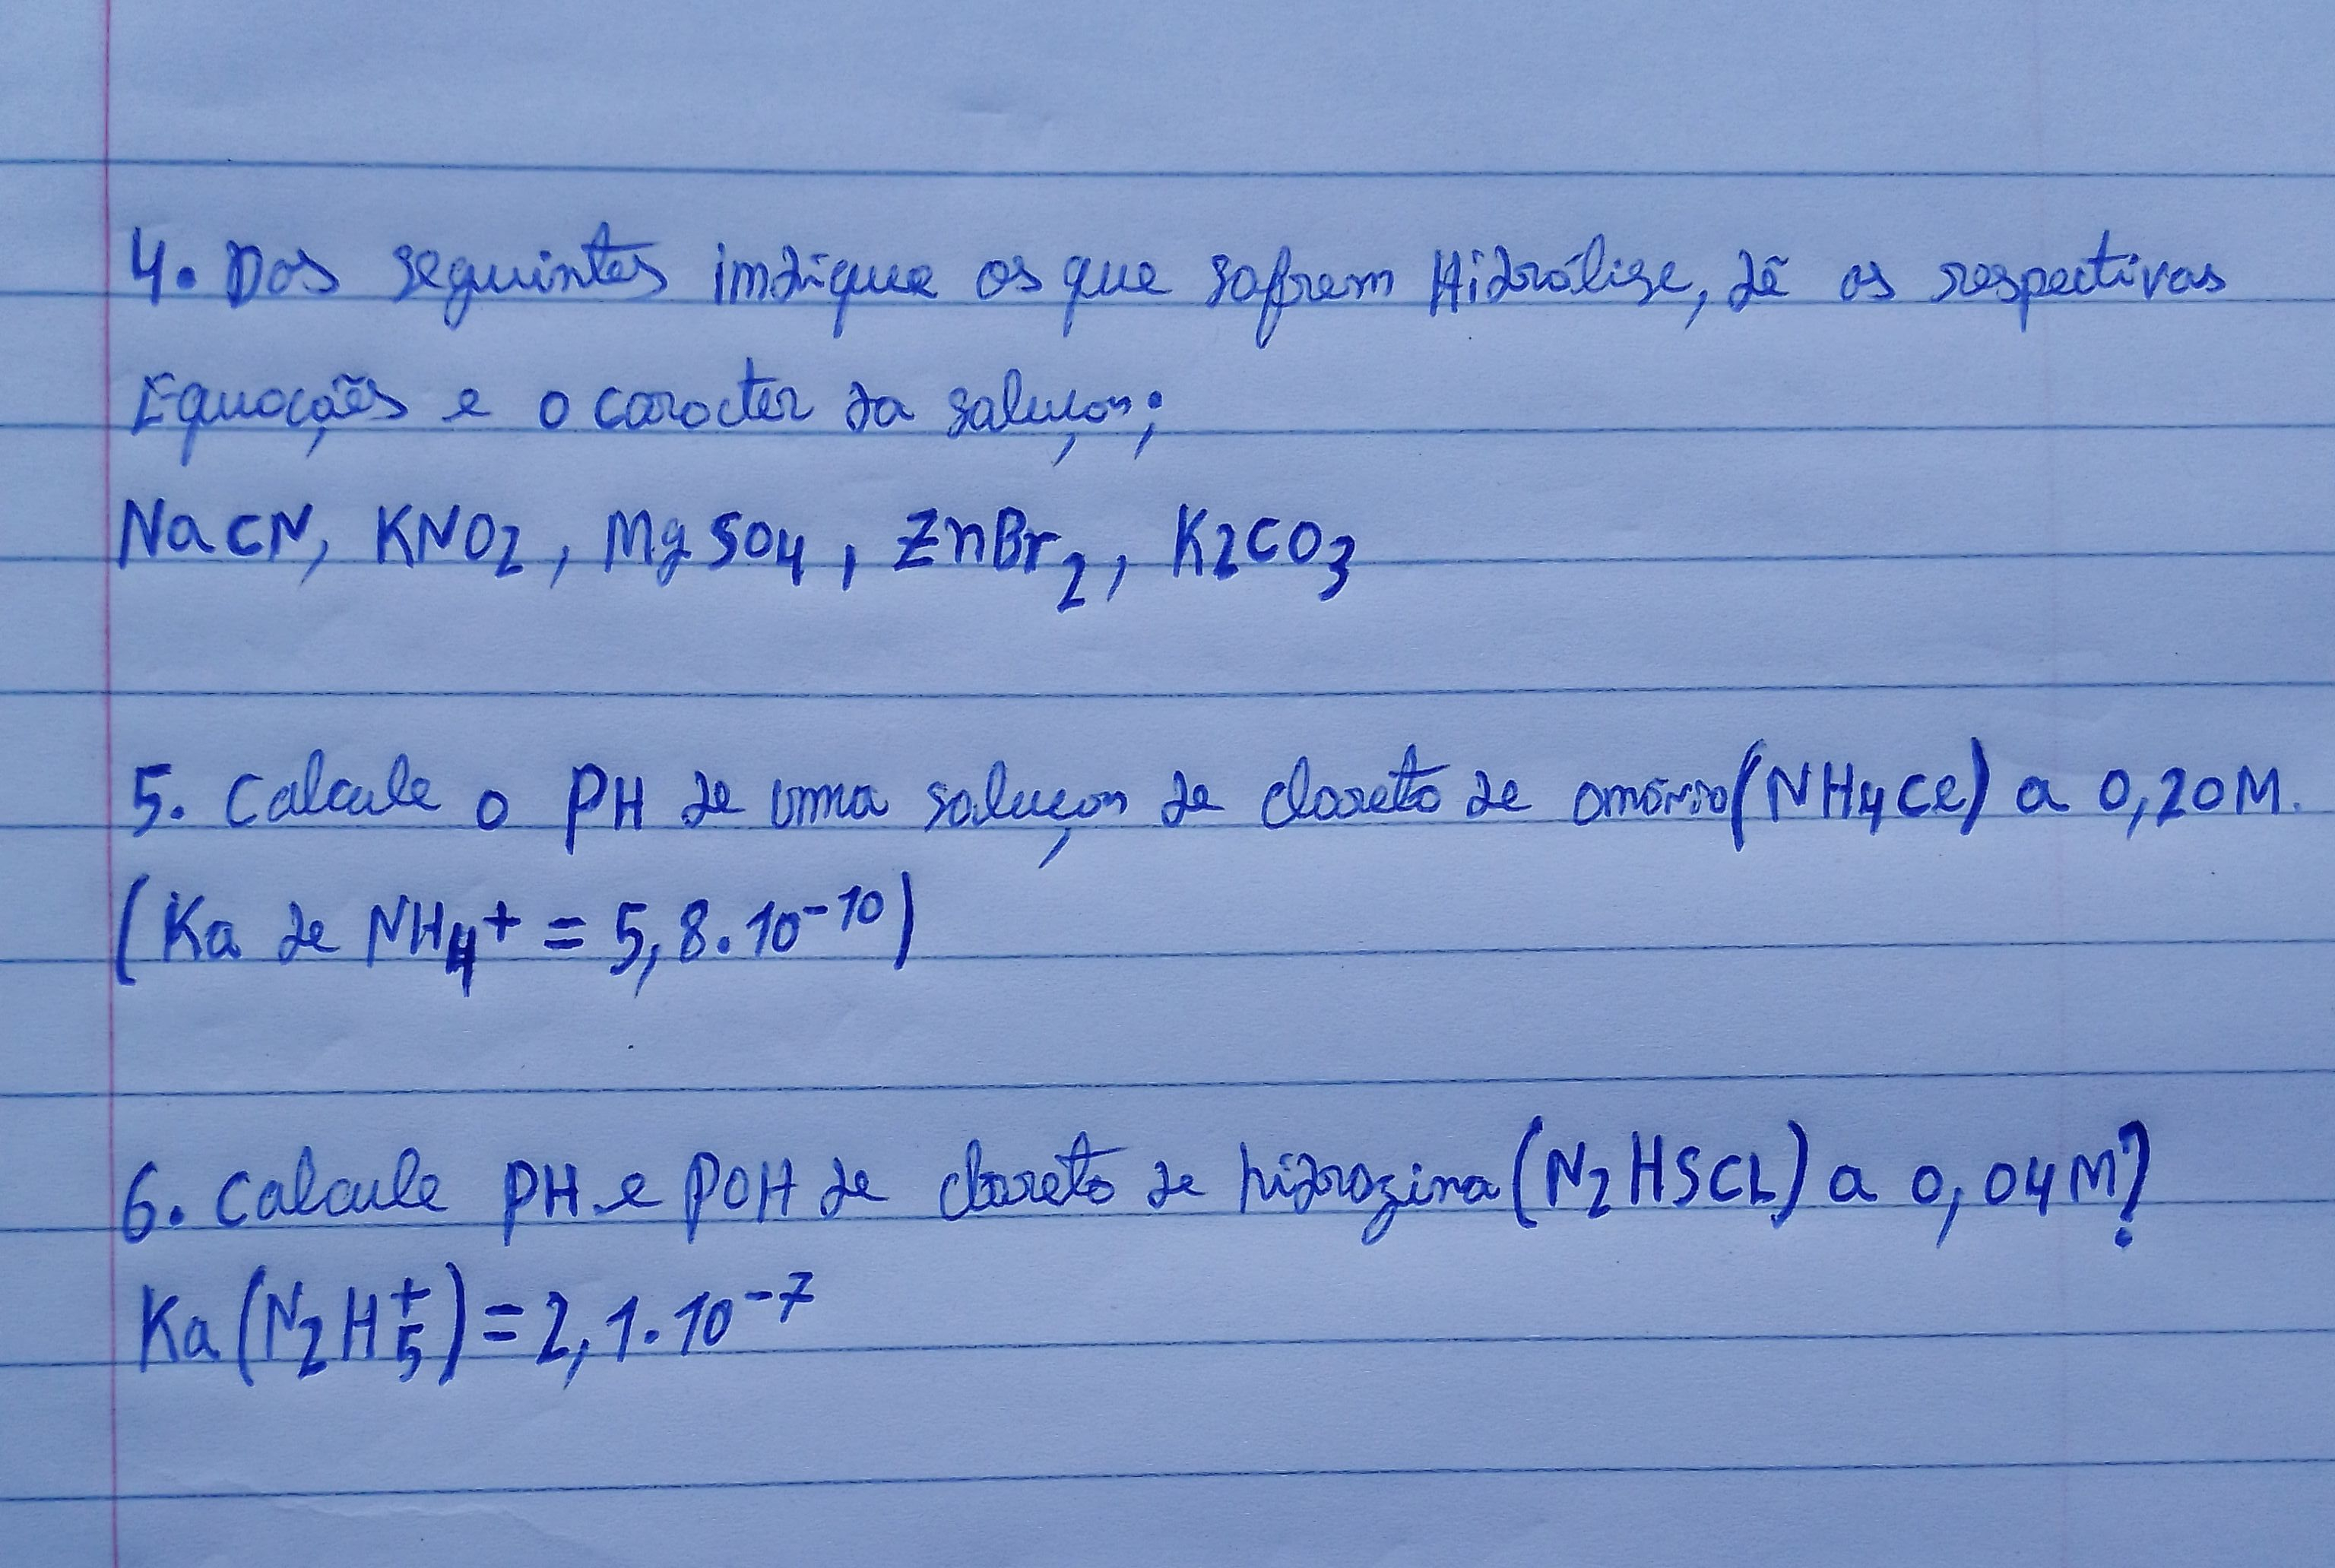 4. Dos seguintes indique os que sofrem Hidrólise, dê as respectivas
Equações e o caracter da solução;
NaCN, KNO2, MgSO4, ZnBr2, K2CO3
5. Calcule o PH de uma solução de cloreto de amónio (NH4Cl) a 0,20M.
(Ka de NH4+ = 5,8.10-10)
6. Calcule PH e POH de cloreto de hidrazina (N2H5CL) a 0,04M?
Ka(N2H5+) = 2,1.10-7